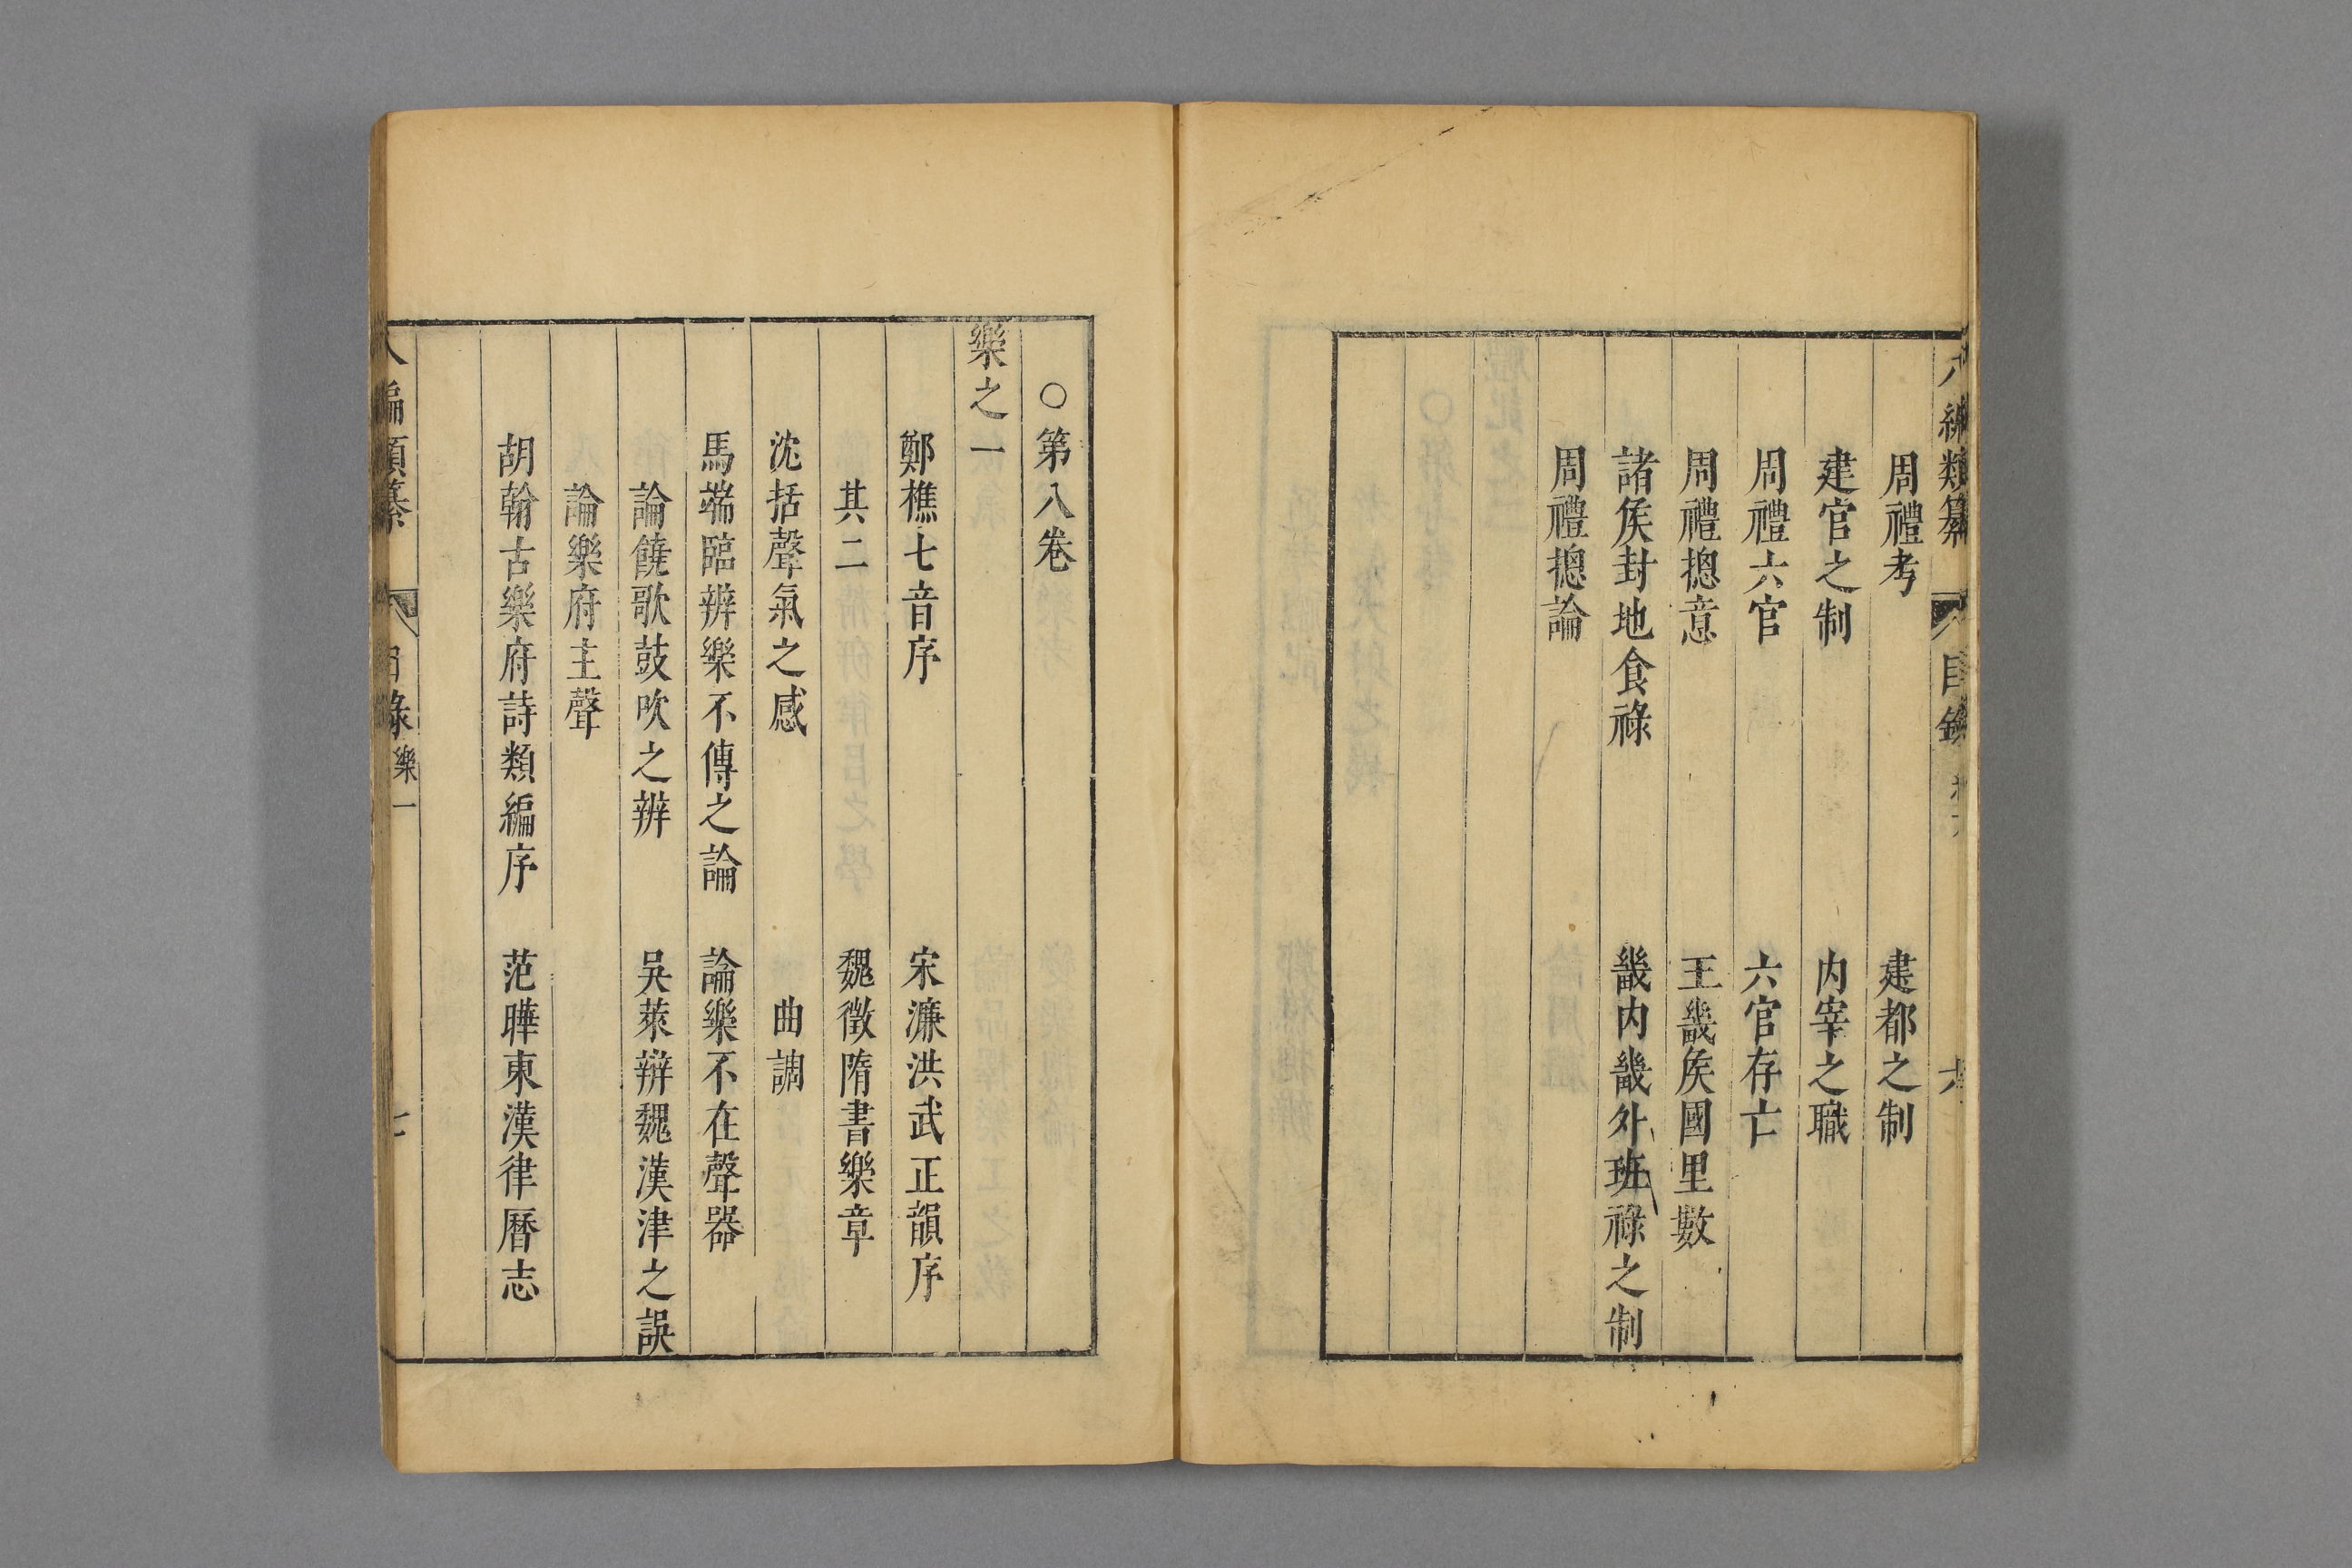 八編類纂 目錄 六
周禮考 建都之制
建官之制 内宰之職
周禮六官 六官存亡
周禮揔意 王畿矦國里數
諸矦封地食祿 畿内畿外班祿之制
周禮揔論
○第八卷
樂之一
鄭樵七音序 宋濂洪武正韻序
其二 魏徵隋書樂章
沈括聲氣之感 曲調
馬端臨辨樂不傳之論 論樂不在聲器
論饒歌鼓吹之辨 吳萊辨魏漢津之誤
論樂府主聲
胡翰古樂府詩類編序 范曄東漢律曆志
八編類纂 目錄 樂一 七